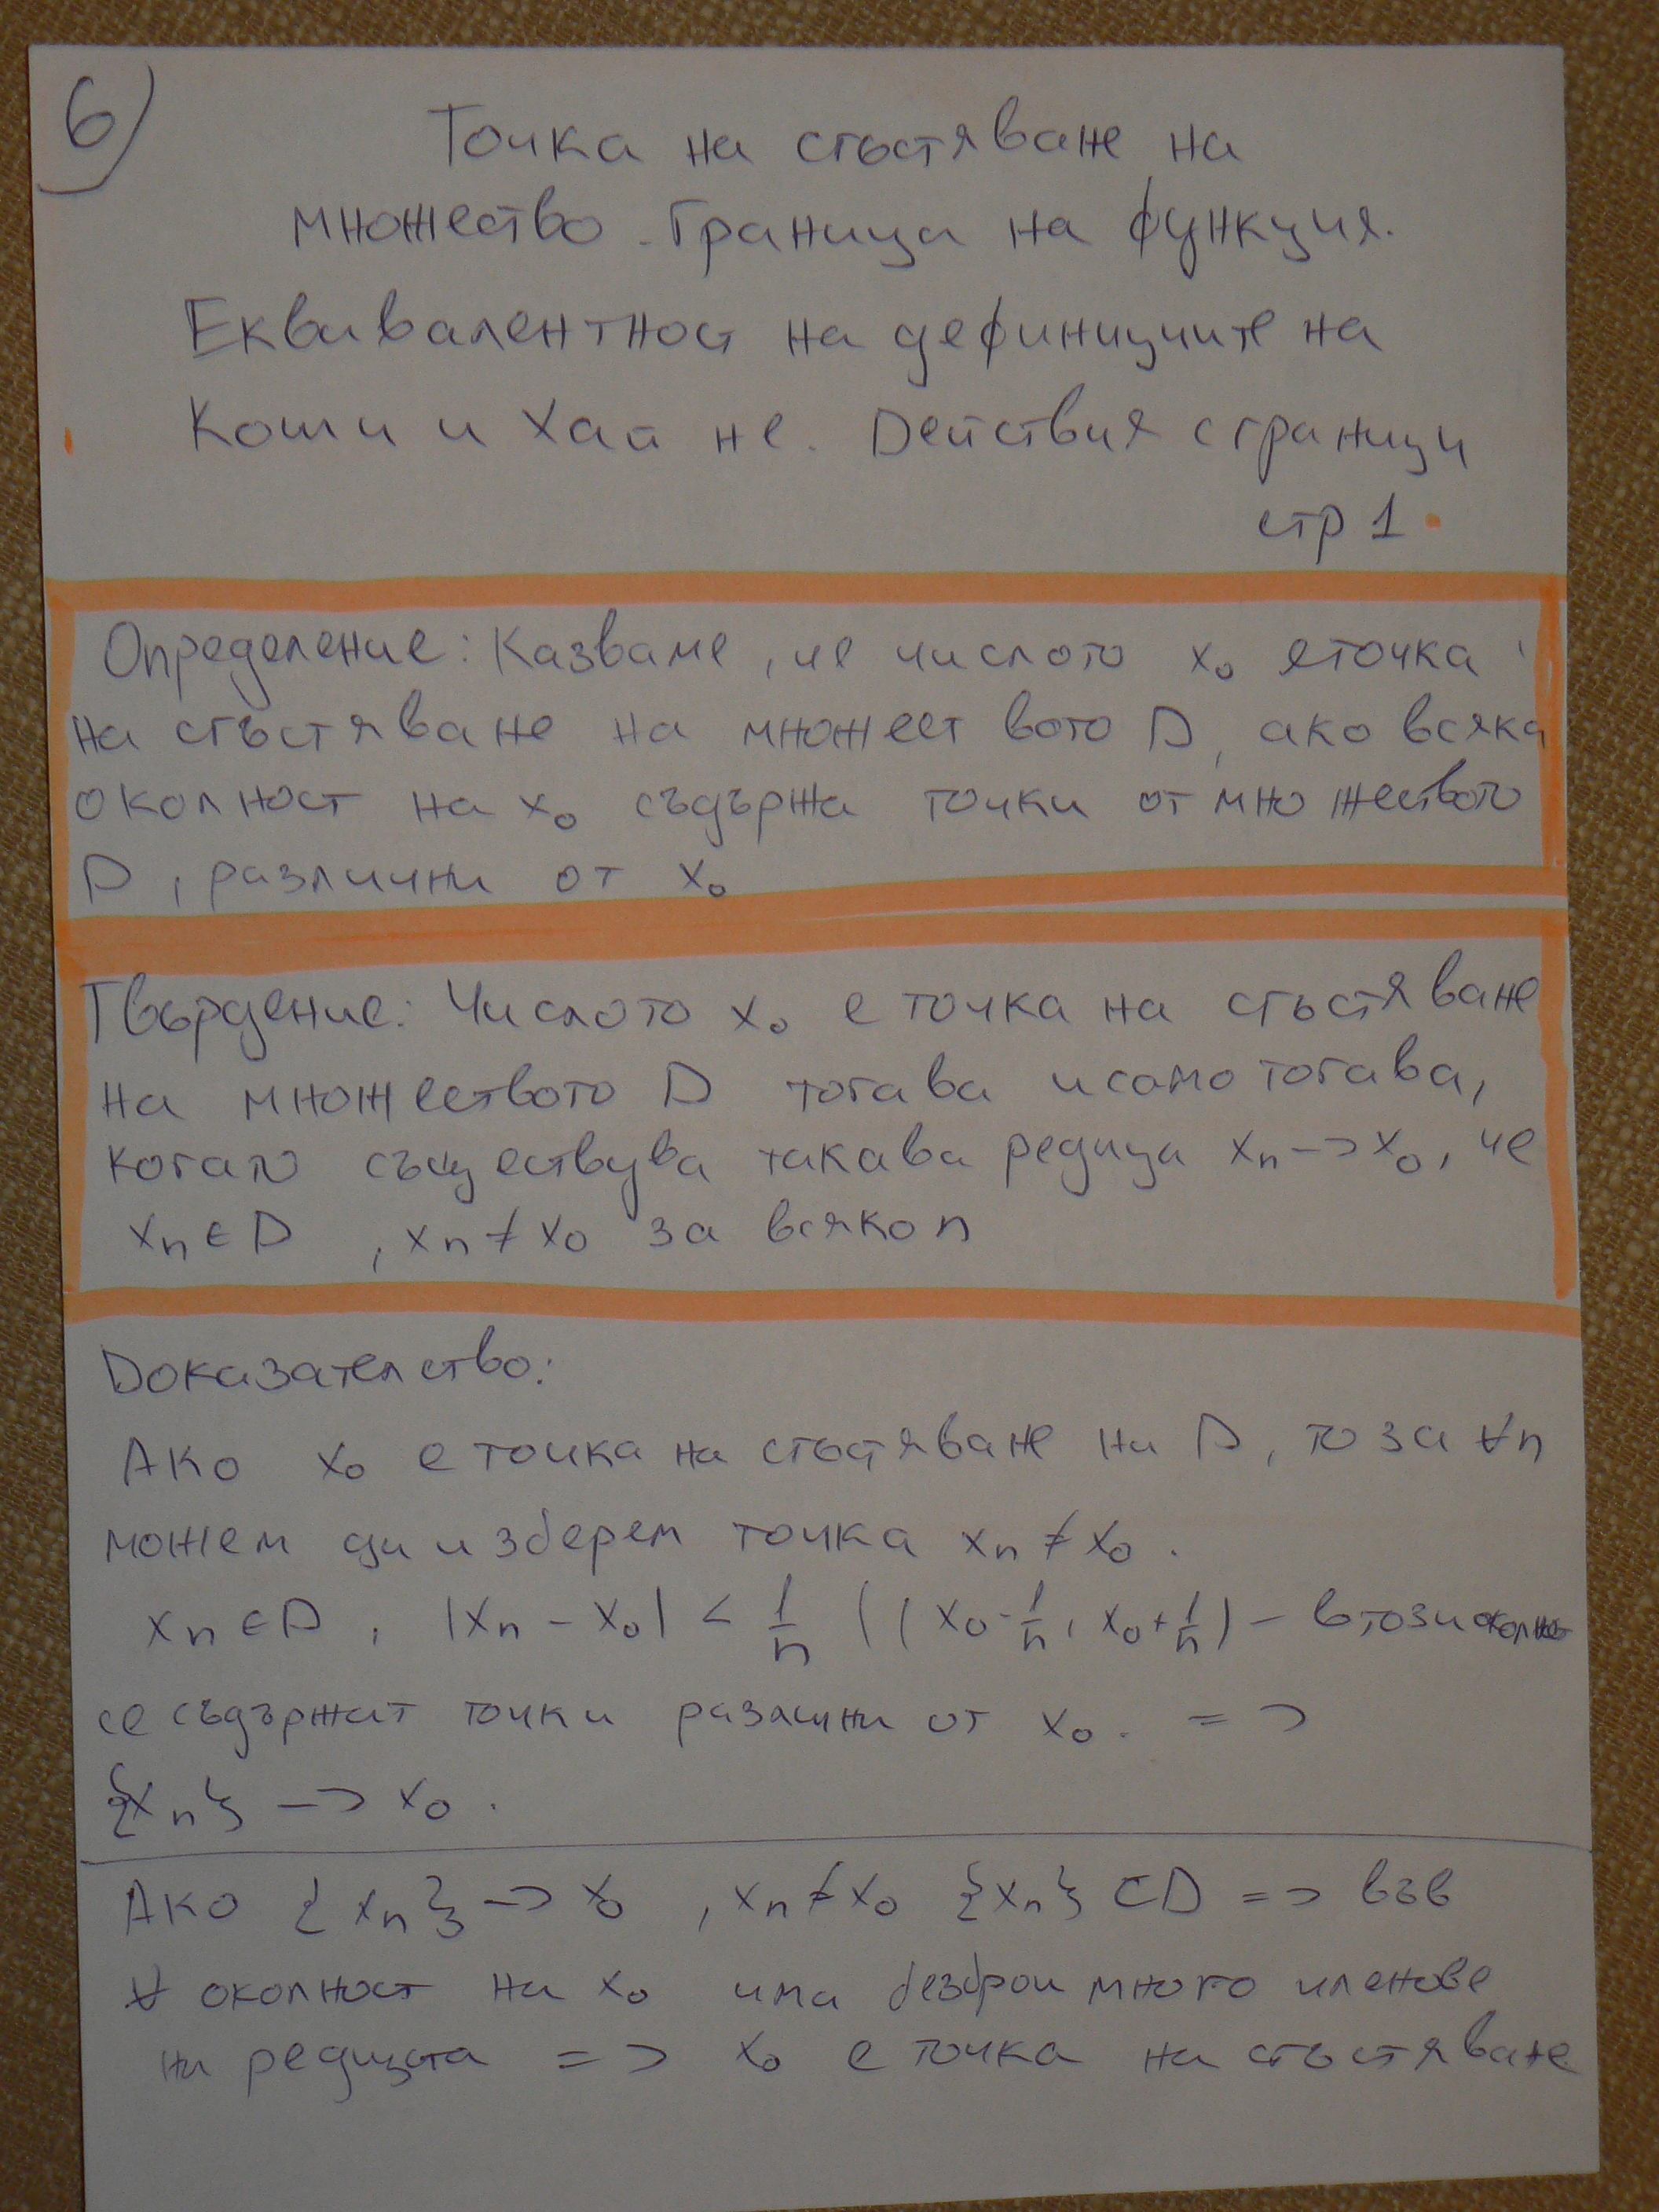 6)
Точка на сгъстяване на
множество. Граница на функция.
Еквивалентност на дефинициите на
Коши и Хайне. Действия с граници
стр 1.
Определение: Казваме, че числото x₀ е точка
на сгъстяване на множеството D, ако всяка
околност на x₀ съдържа точки от множеството
D, различни от x₀
Твърдение: Числото x₀ е точка на сгъстяване
на множеството D тогава и само тогава,
когато съществува такава редица xₙ -> x₀, че
xₙ ∈ D , xₙ ≠ x₀ за всяко n
Доказателство:
Ако x₀ е точка на сгъстяване на D, то за ∀n
можем да изберем точка xₙ ≠ x₀.
xₙ ∈ D, |xₙ - x₀| < 1/n ((x₀ - 1/n, x₀ + 1/n) - в този
се съдържат точки различни от x₀. =>
{xₙ} -> x₀.
Ако {xₙ} -> x₀, xₙ ≠ x₀ {xₙ} ⊂ D => във
∀ околност на x₀ има безброй много членове
на редицата => x₀ е точка на сгъстяване